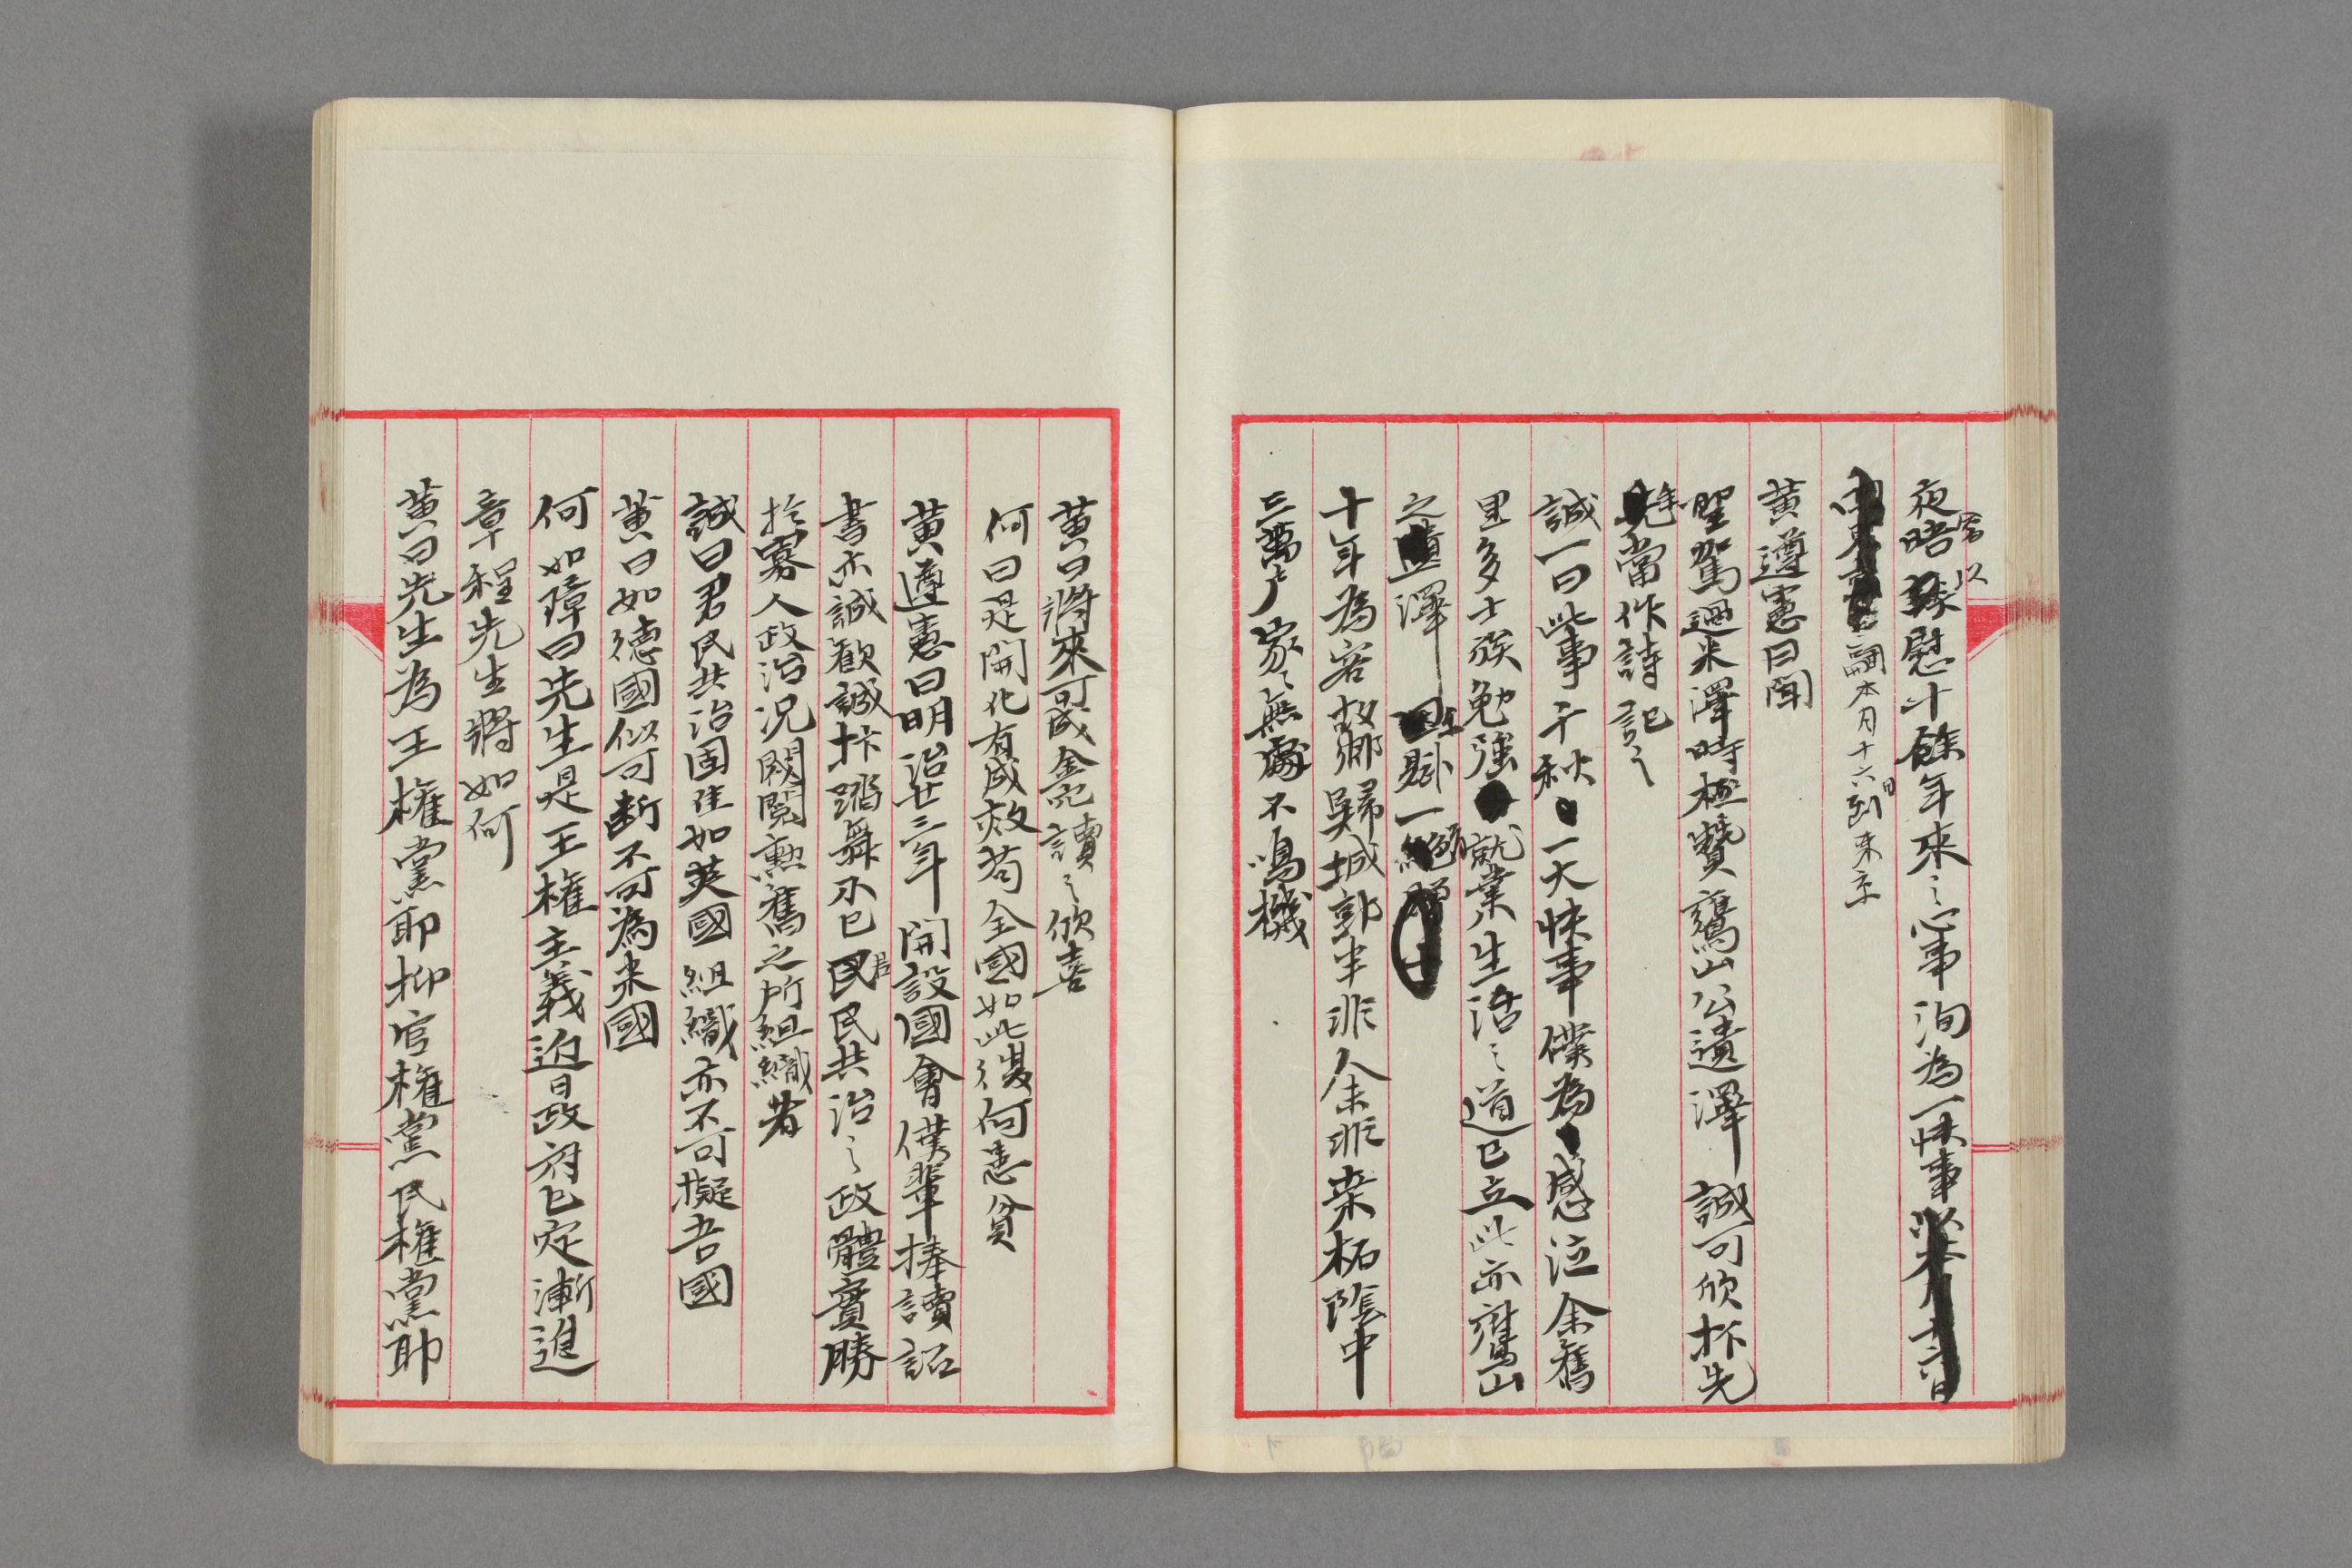 夜晤客以慰十餘年來之心事洵為一快事
嗣本月十六日到東京
黃遵憲曰聞
聖駕過米澤時極贊鷹山公遺澤誠可欣抃先
生當作詩記之
誠一曰此事千秋一大快事僕為感泣余舊
里多士族勉強就業生活之道已立此亦鷹山
之遺澤 賦一絕
十年為客故鄉歸城郭半非人未非桑柘陰中
三萬戶家々無處不鳴機
黃曰將來可成金穴讀之欣喜
何曰是開化有成效苟全國如此復何患貧
黃遵憲曰明治廿三年開設國會僕輩捧讀詔
書亦誠歡誠抃蹈舞不已君民共治之政體實勝
於寡人政治況閥閱勳舊之所組織者
誠曰君民共治固佳如英國組織亦不可擬吾國
黃曰如德國似可斷不可為米國
何如璋曰先生是王權主義近日政府已定漸進
章程先生將如何
黃曰先生為王權黨耶抑官權黨民權黨耶